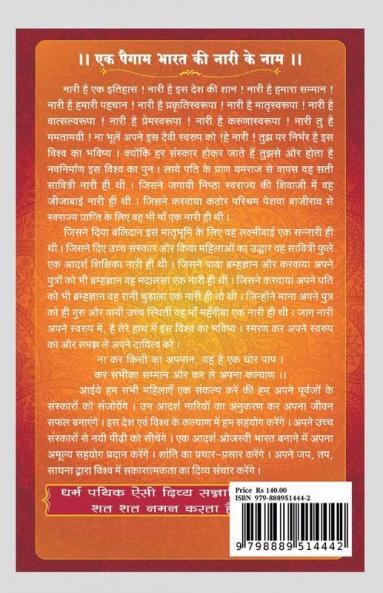 ।। एक पैगाम भारत की नारी के नाम ।।
नारी है एक इतिहास ! नारी है इस देश की शान ! नारी है हमारा सम्मान !
नारी है हमारी पहचान ! नारी है प्रकृतिस्वरूपा ! नारी है मातृस्वरूपा ! नारी है
वात्सल्यरूपा ! नारी है प्रेमस्वरूपा ! नारी है करुणास्वरूपा ! नारी तु है
ममतामयी ! ना भूलें अपने इस दैवी स्वरुप को !हे नारी ! तुझ पर निर्भर है इस
विश्व का भविष्य । क्योंकि हर संस्कार होकर जाते हैं तुझसे और होता है
नवनिर्माण इस विश्व का पुनः। लाये पति के प्राण यमराज से वापस वह सती
सावित्री नारी ही थी । जिसने जगायी निष्ठा स्वराज्य की शिवाजी में वह
जीजाबाई नारी ही थी । जिसने करवाया कठोर परिश्रम पेशवा बाजीराव से
स्वराज्य प्राप्ति के लिए वह भी माँ एक नारी ही थी ।
जिसने दिया बलिदान इस मातृभूमि के लिए वह लक्ष्मीबाई एक सन्नारी ही
थी । जिसने दिए उच्च संस्कार और किया महिलाओं का उद्धार वह सावित्री फुले
एक आदर्श शिक्षिका नारी ही थी । जिसने पाया ब्रम्हज्ञान और करवाया अपने
पुत्रों को भी ब्रम्हज्ञान वह मदालसा एक नारी ही थी । जिसने करवाया अपने पति
को भी ब्रम्हज्ञान वह रानी चुडाला एक नारी ही तो थी । जिन्होंने माना अपने पुत्र
को ही गुरु और पायी उच्च स्थिती वह माँ महँगीबा एक नारी ही थी । जाग नारी
अपने स्वरुप में, है तेरे हाथ में इस विश्व का भविष्य । स्मरण कर अपने स्वरुप
का और समझ ले अपने दायित्व को ।
ना कर किसी का अपमान, यह है एक घोर पाप ।
कर सभीका सम्मान और कर ले अपना कल्याण ।।
आईये हम सभी महिलाएँ एक संकल्प करें की हम अपने पूर्वजों के
संस्कारों को संजोयेंगे । उन आदर्श नारियों का अनुकरण कर अपना जीवन
सफल बनाएंगे । इस देश एवं विश्व के कल्याण में हम सहयोग करेंगे । अपने उच्च
संस्कारों से नयी पीढ़ी को सीचेंगे । एक आदर्श ओजस्वी भारत बनाने में अपना
अमूल्य सहयोग प्रदान करेंगे । शांति का प्रचार-प्रसार करेंगे । अपने जप, तप,
साधना द्वारा विश्व में सकारात्मकता का दिव्य संचार करेंगे ।
धर्म पथिक ऐसी दिव्य सन्ना
शत शत नमन करता है
Price Rs 140.00
ISBN 979-888951444-2
9 798889 514442